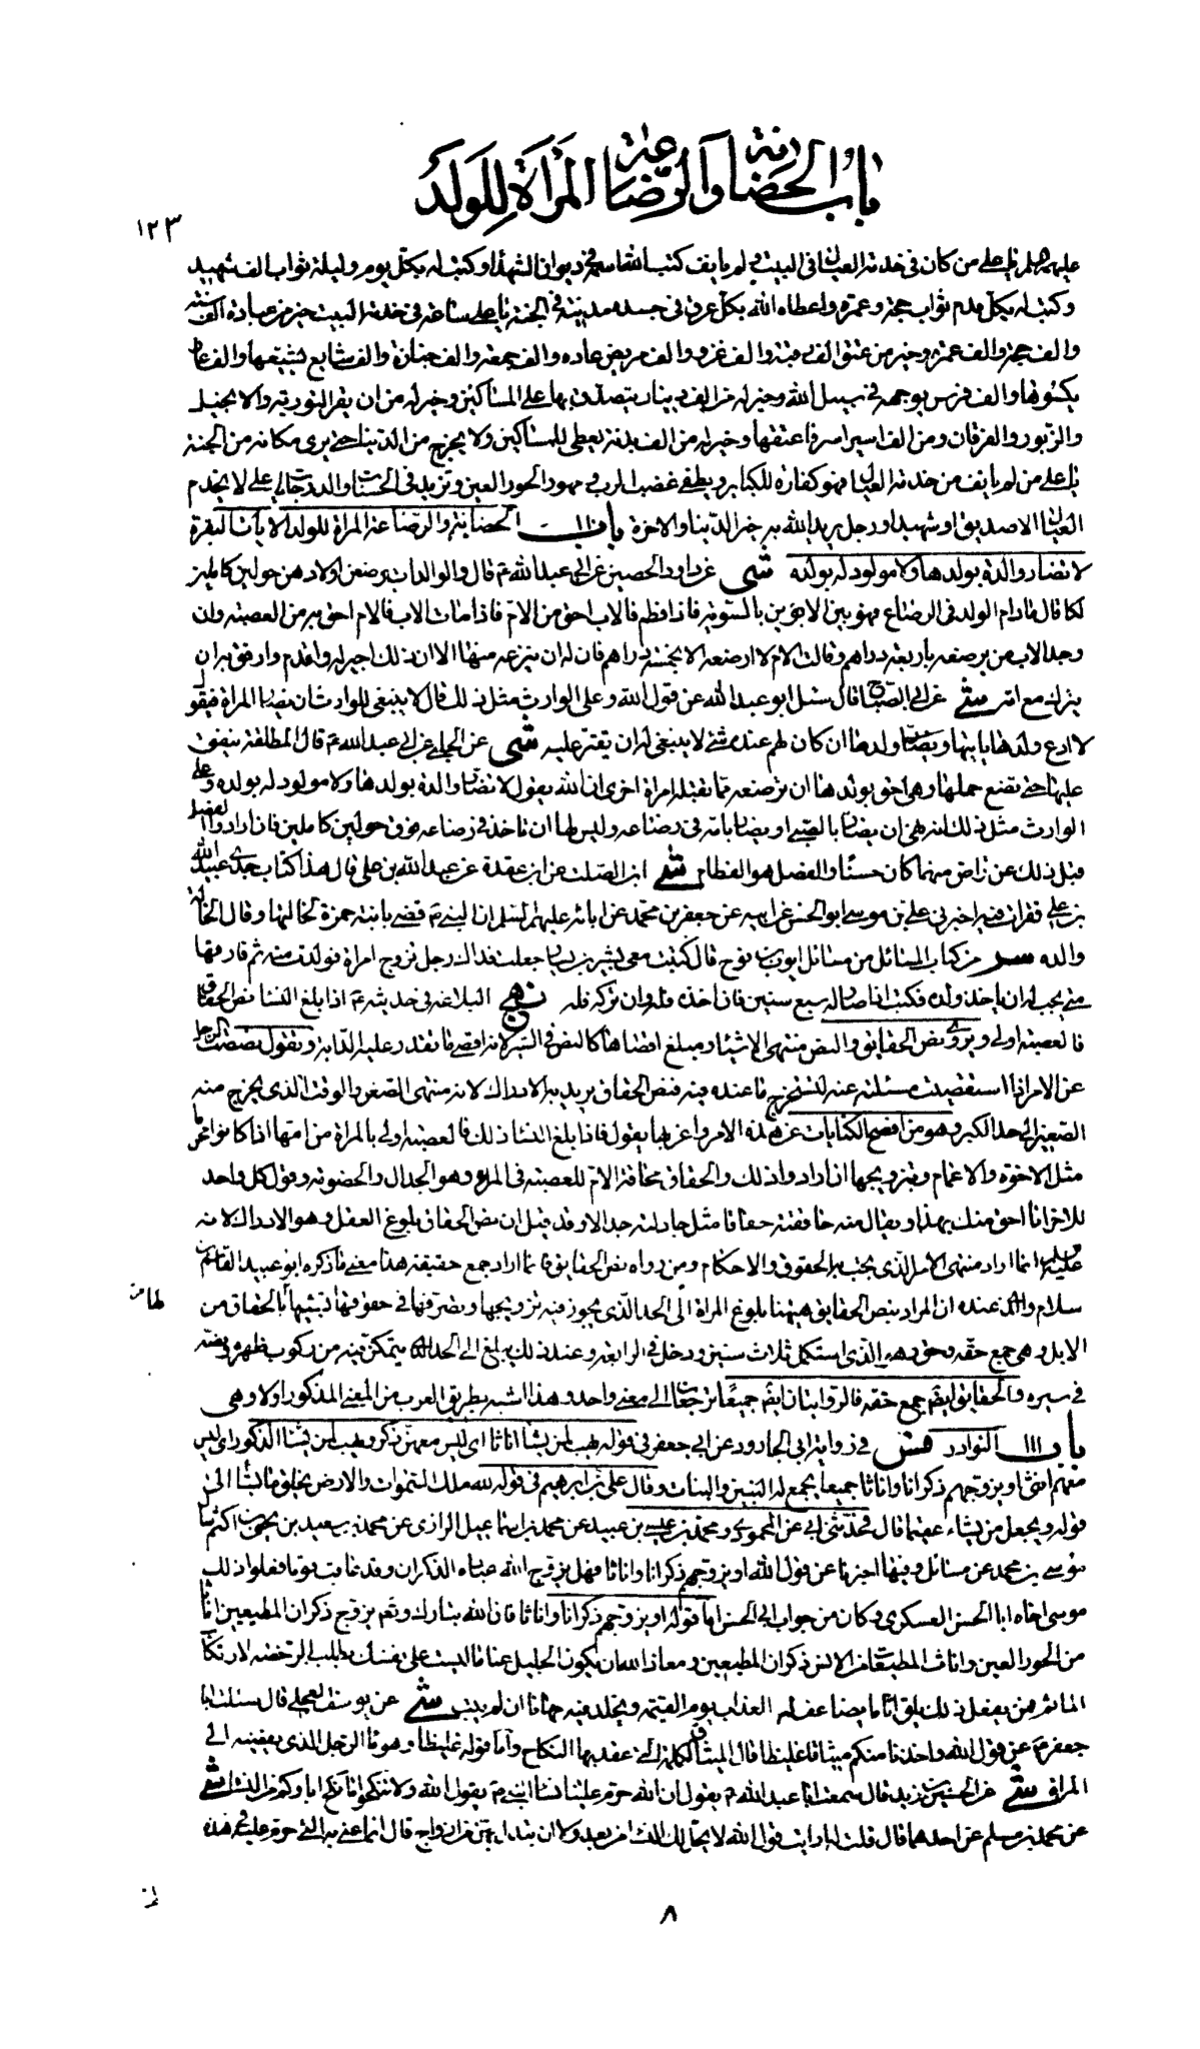 باب الحضانة والرضاعة المرأة للولد
١٢٣
يا علي من كان في خدمة العيال في البيت ولم يأنف كتب الله اسمه في ديوان الشهداء وكتب له بكل يوم وليلة ثواب الف شهيد
وكتب له بكل قدم ثواب حجة وعمرة واعطاه الله بكل عرق في جسده مدينة في الجنة يا علي ساعة في خدمة البيت خير من عبادة الف سنة
والف حجة والف عمرة وخير من عتق الف رقبة والف غزوة والف مريض عاده والف جمعة والف جنازة والف شايع يشبعها والف عار
يكسوها والف فرس يوجهه في سبيل الله وخير له من الف دينار يتصدق بها على المساكين وخير له من ان يقرأ التورية والانجيل
والزبور والفرقان ومن الف اسير اسر فاعتقها وخير له من الف بدنة يعطي للمساكين ولا يخرج من الدنيا حتى يرى مكانه من الجنة
يا علي من لم يأنف من خدمة العيال فهو كفارة للكبائر ويطفئ غضب الرب ومهور الحور العين وتزيد في الحسنات والدرجات يا علي لا يخدم
العيال الا صديق او شهيد او رجل يريد الله به خير الدنيا والاخرة باب الحضانة والرضاعة المرأة للولد الآيات البقرة
لا تضار والدة بولدها ولا مولود له بولده شى عن داود بن الحصين عن ابي عبد الله ع قال والوالدات يرضعن اولادهن حولين كاملين
قال ما دام الولد في الرضاع فهو بين الابوين بالسوية فاذا فطم فالاب احق من الام فاذا مات الاب فالام احق به من العصبة وان
وجد الاب من يرضعه باربعة دراهم وقالت الام لا ارضعه الا بخمسة دراهم فان له ان ينزعه منها الا ان ذلك اجير له واقدم وارفق به ان
يترك مع امه شى عن ابي الصباح قال سئل ابو عبد الله عن قول الله وعلى الوارث مثل ذلك قال لا ينبغي للوارث ان يضار المرأة فيقول
لا ادع ولدها يأتيها ويضار ولدها ان كان لهم عنده شئ لا ينبغي له ان يقتر عليه شى عن الحلبي عن ابي عبد الله ع قال المطلقة ينفق
عليها حتى تضع حملها وهي احق بولدها ان ترضعه بما تقبله امرأة اخرى ان الله يقول لا تضار والدة بولدها ولا مولود له بولده وعلى
الوارث مثل ذلك انه نهى ان يضار بالصبي او يضار بامه في رضاعه وليس لها ان تأخذ في رضاعه فوق حولين كاملين فان ارادوا الفصال
قبل ذلك عن تراض منهما كان حسنا والفصل هو الفطام ابن الصلت عن ابن عقدة عن عبد الله بن علي قال هذا كتاب جدي عبيد الله
بن علي فقرأت فيه اخبرني علي بن موسى ابو الحسن عن ابيه عن جعفر بن محمد عن ابائه عليهم السلم ان النبي ص قضى بابنة حمزة لخالتها وقال الخالة
والدة سر من كتاب المسائل من مسائل ايوب بن نوح قال كتبت مع بشير بن بشار جعلت فداك رجل تزوج امرأة فولدت منه ثم فارقها
متى يجب له ان يأخذ ولده فكتب اذا صار له سبع سنين فان اخذه فله وان تركه فله نهج البلاغة في حديثه ع اذا بلغ النساء نص الحقاق
فالعصبة اولى ويروى نص الحقايق والنص منتهى الاشياء ومبلغ اقصاها كالنص في السير لانه اقصى ما تقدر عليه الدابة وتقول نصصت الرجل
عن الامر اذا استقصيت مسئلته عنه لتستخرج ما عنده فيه فنص الحقاق يريد به الادراك لانه منتهى الصغر والوقت الذي يخرج منه
الصغير الى حد الكبر وهو من افصح الكنايات عن هذا الامر واغربها يقول فاذا بلغ النساء ذلك فالعصبة اولى بالمرأة من امها اذا كانوا محرما
مثل الاخوة والاعمام وبتزويجها ان ارادوا ذلك والحقاق محاقة الام للعصبة في المرأة وهو الجدال والخصومة وقول كل واحد
للاخر انا احق منك بهذا ويقال منه حاققته حقاقا مثل جادلته جدالا وقد قيل ان نص الحقاق بلوغ العقل وهو الادراك لانه
عليه السلم انما اراد منتهى الامر الذي يجب به الحقوق والاحكام ومن رواه نص الحقايق فانما اراد جمع حقيقة هذا معنى ما ذكره ابو عبيد القاسم بن
سلام والذي عنده ان المراد بنص الحقايق هيهنا بلوغ المرأة الى الحد الذي يجوز فيه تزويجها وتصرفها في حقوقها تشبيها بالحقاق من
الابل وهي جمع حقة وحق وهو الذي استكمل ثلاث سنين ودخل في الرابعة وعند ذلك يبلغ الى الحد الذي يتمكن فيه من ركوب ظهره ونصه
في سيره والحقايق ايضا جمع حقة فالروايتان جميعا ترجعان الى معنى واحد وهذا اشبه بطريق العرب من المعنى المذكور اولا
باب النوادر فس في رواية ابي الجارود عن ابي جعفر في قوله يهب لمن يشاء اناثا اي ليس معهن ذكر ويهب لمن يشاء الذكور اي ليس
معهم انثى او يزوجهم ذكرانا واناثا جميعا يجمع له البنين والبنات وقال علي بن ابرهيم في قوله لله ملك السموات والارض يخلق ما يشاء الى
قوله ويجعل من يشاء عقيما قال فحدثني ابي عن المحمودي ومحمد بن عيسى بن عبيد عن محمد بن اسماعيل الرازي عن محمد بن سعيد ان يحيى بن اكثم سأل
موسى بن محمد عن مسائل وفيها اخبرنا عن قول الله او يزوجهم ذكرانا واناثا فهل يزوج الله عباده الذكران وقد عاقب قوما فعلوا ذلك
موسى اخاه ابا الحسن العسكري وكان من جواب ابي الحسن اما قوله او يزوجهم ذكرانا واناثا فان الله تبارك وتعالى يزوج ذكران المطيعين اناثا
من الحور العين واناث المطيعات من الانس ذكران المطيعين ومعاذ الله ان يكون الجليل عنى ما لبست على نفسك تطلب الرخصة لارتكاب
المآثم ومن يفعل ذلك يلق اثاما يضاعف له العذاب يوم القيمة ويخلد فيه مهانا ان لم يتب شى عن يوسف العجلي قال سئلت ابا
جعفر ع عن قول الله واخذن منكم ميثاقا غليظا قال الميثاق الكلمة التي عقد بها النكاح واما قوله غليظا فهو ماء الرجل الذي يفضيه الى
المرأة شى عن الحسين بن زيد قال سمعت ابا عبد الله ع يقول ان الله حرم علينا نساء النبي ص يقول الله ولا تنكحوا ما نكح اباؤكم من النساء شى
عن محمد بن مسلم عن احدهما قال قلت له ارأيت قول الله لا يحل لك النساء من بعد ولا ان تبدل بهن من ازواج قال انما عنى به التي حرم عليه في هذه
٨